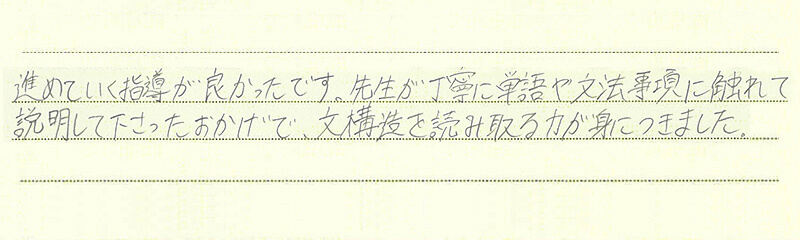 進めていく指導が良かったです。先生が丁寧に単語や文法事項に触れて
説明して下さったおかげで、文構造を読み取る力が身につきました。